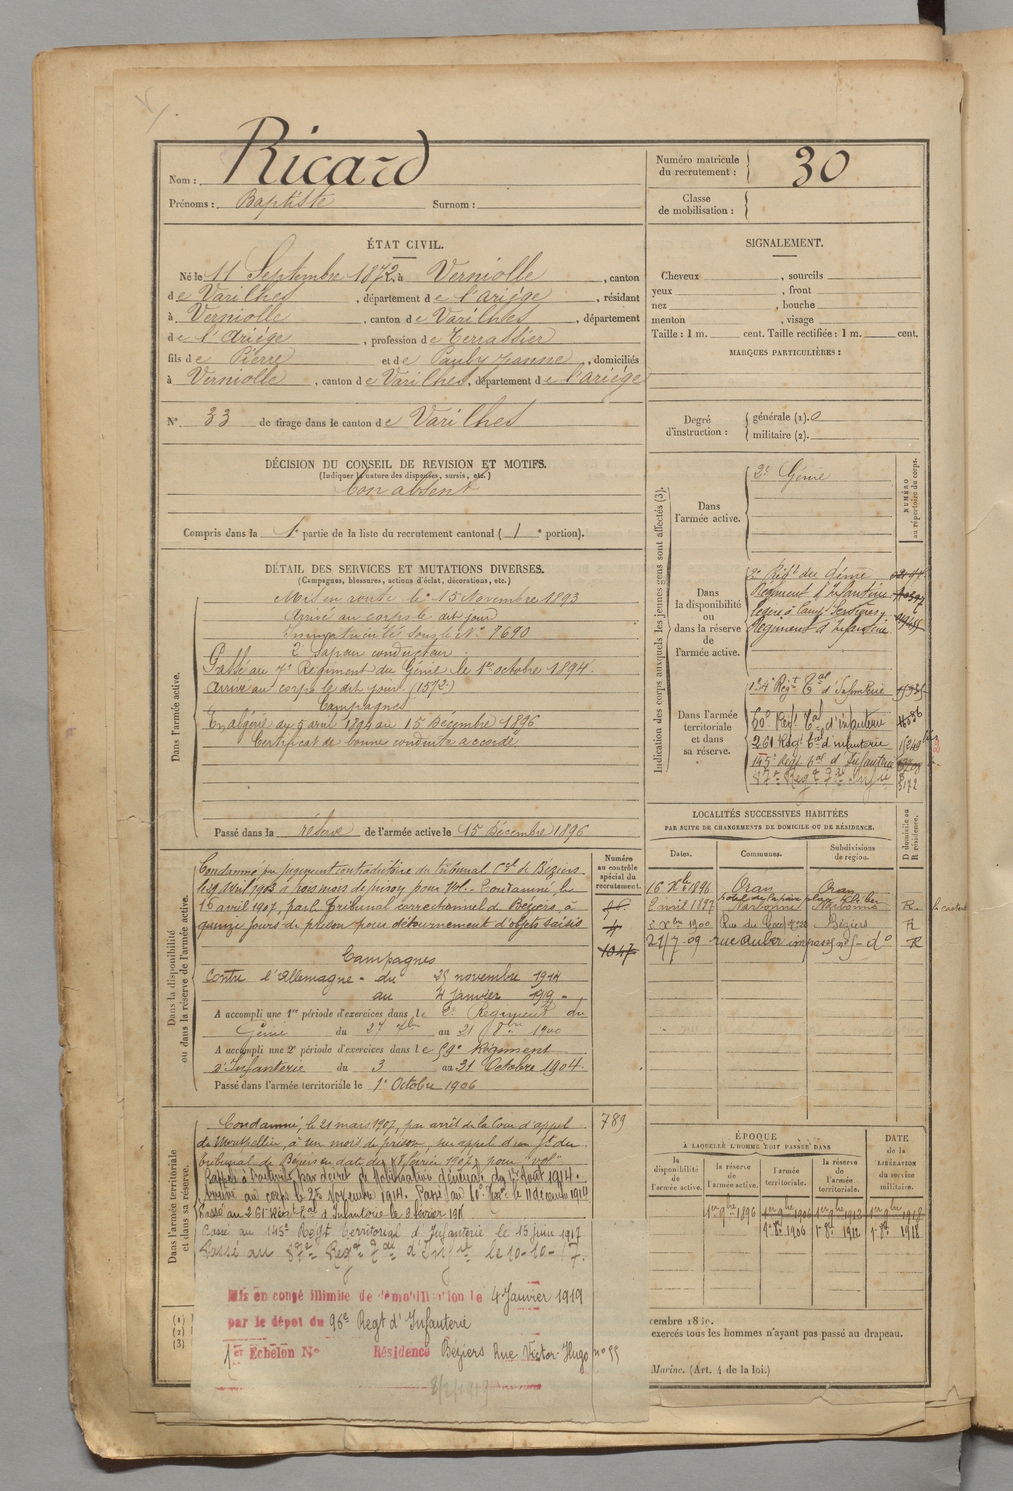 Nom : Ricard
Prénoms : Baptiste Surnom :
Numéro matricule du recrutement : 30
Classe de mobilisation :
ÉTAT CIVIL.
Né le 11 Septembre 1872, à Verniolle, canton
de Varilhes, département de l'ariége, résidant
à Verniolle, canton de Varilhes, département
de l'Ariége, profession de Terrassier
fils de Pierre et de Pauly Jeanne, domiciliés
à Verniolle, canton de Varilhes, département de l'ariége
N° 33 de tirage dans le canton de Varilhes
DÉCISION DU CONSEIL DE REVISION ET MOTIFS.
(Indiquer la nature des dispenses, sursis, etc.)
bon absent
Compris dans la 1e partie de la liste du recrutement cantonal (1e portion).
DÉTAIL DES SERVICES ET MUTATIONS DIVERSES.
(Campagnes, blessures, actions d'éclat, décorations, etc.)
Dans l'armée active.
Mis en route le 15 Novembre 1893
Arrivé au corps le dit jour
Immatriculé sous le N° 7690
2e Sapeur conducteur
Passé au 7e Régiment du Génie le 1er octobre 1894.
Arrivé au corps le dit jour (1572)
Campagnes
En algérie du 5 avril 1894 au 15 Décembre 1896
Certificat de bonne conduite accordé
Passé dans la réserve de l'armée active le 15 Décembre 1896
Dans la disponibilité
ou dans la réserve de l'armée active.
Numéro au contrôle spécial du recrutement.
Condamné par jugement contradictoire du tribunal Cel de Béziers
le 19 avril 1903 à trois mois de prison pour vol. - Condamné, le
16 avril 1907, par le Tribunal correctionnel de Béziers, à
quinze jours de prison pour détournement d'objets saisis
1047
Campagnes
Contre l'Allemagne - du 25 novembre 1914
au 4 janvier 1919 -
A accompli une 1re période d'exercices dans le 2e Régiment du
Génie du 27 7bre au 21 8bre 1900
A accompli une 2e période d'exercices dans le 59e Régiment
d'Infanterie du 3 au 31 Octobre 1904.
Passé dans l'armée territoriale le 1er Octobre 1906
Dans l'armée territoriale
et dans sa réserve.
789
Condamné, le 21 mars 1907, par arrêt de la Cour d'appel
de Montpellier, à un mois de prison, sur appel d'un jt du
tribunal de Béziers en date du 8 février 1907, pour "vol"
Rappelé à l'activité par décret de Mobilisation générale du 1er Août 1914.
Arrivé au corps le 25 Novembre 1914. Passé au 60e Terr. le 11 décembre 1914
Passé au 261 Régt Tal d'Infanterie le 2 février 191
Passé au 145e Regt territorial d'Infanterie le 15 juin 1917
Passé au 87e Regt Tal d'Infie le 10-10-17.
Mis en congé illimité de démobilisation le 4 Janvier 1919
par le dépot du 96e Regt d'Infanterie
1er Echelon N° Résidence Béziers Rue Victor-Hugo n° 55
8/2/1919
(1)
(2)
(3)
SIGNALEMENT.
Cheveux , sourcils
yeux , front
nez , bouche
menton , visage
Taille : 1 m. cent. Taille rectifiée : 1 m. cent.
MARQUES PARTICULIÈRES :
Degré d'instruction : générale (1). 0
militaire (2).
Indication des corps auxquels les jeunes gens sont affectés (3).
NUMÉRO au répertoire du corps.
Dans l'armée active.
2e Génie
Dans la disponibilité ou dans la réserve de l'armée active.
2e Régt du Génie
Régiment d'Infanterie
Régiment d'Infanterie
Dans l'armée territoriale et dans sa réserve.
134e Regt Tal d'Infanterie
60e Regt Tal d'infanterie
261 Régt Tal d'infanterie 15240
145e Régt Tal d'Infantrie
87e Regt Tal Infie 5172
LOCALITÉS SUCCESSIVES HABITÉES
PAR SUITE DE CHANGEMENTS DE DOMICILE OU DE RÉSIDENCE.
Dates. Communes. Subdivisions de région. D domicile ou R résidence.
16 Xbre 1896 Oran Oran
2 avril 1897 Narbonne Narbonne R
2 Xbre 1900 Béziers R
21/7-09 rue Auber impasse n° 5 - d° R
ÉPOQUE
À LAQUELLE L'HOMME DOIT PASSER DANS
DATE de la LIBÉRATION du service militaire.
la disponibilité de l'armée active. la réserve de l'armée active. l'armée territoriale. la réserve de l'armée territoriale.
1er 9bre 1896 1er 9bre 1906 1er 9bre 1912 1er 9bre 1918
1er 8bre 1906 1er 8bre 1912 1er 8bre 1918
cembre 18
exercés tous les hommes n'ayant pas passé au drapeau.
Marine. (Art. 4 de la loi.)